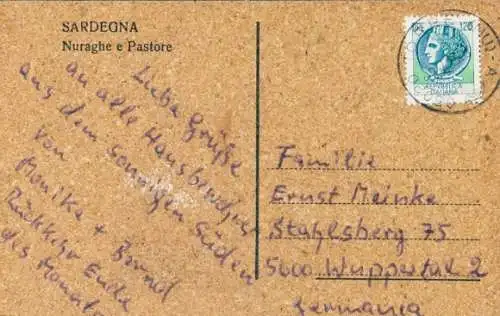 SARDEGNA
Nuraghe e Pastore
Liebe Grüße
an alle Hausbewohner
aus dem sonnigen Süden
von
Monika + Bernd
Rückkehr Ende
des Monats
120
REPVBBLICA
ITALIANA
Familie
Ernst Meinke
Stahlsberg 75
5600 Wuppertal 2
Germania